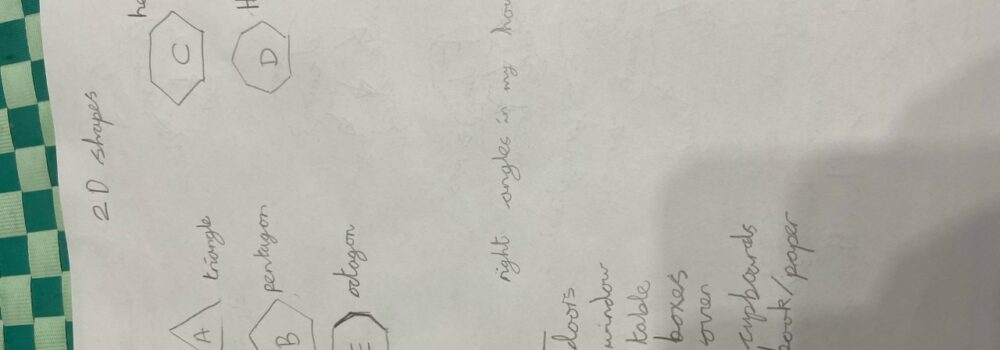 2D shapes
A triangle
C
B pentagon
D
E octagon
right angles in my
doors
window
table
boxes
oven
cupboards
book/paper